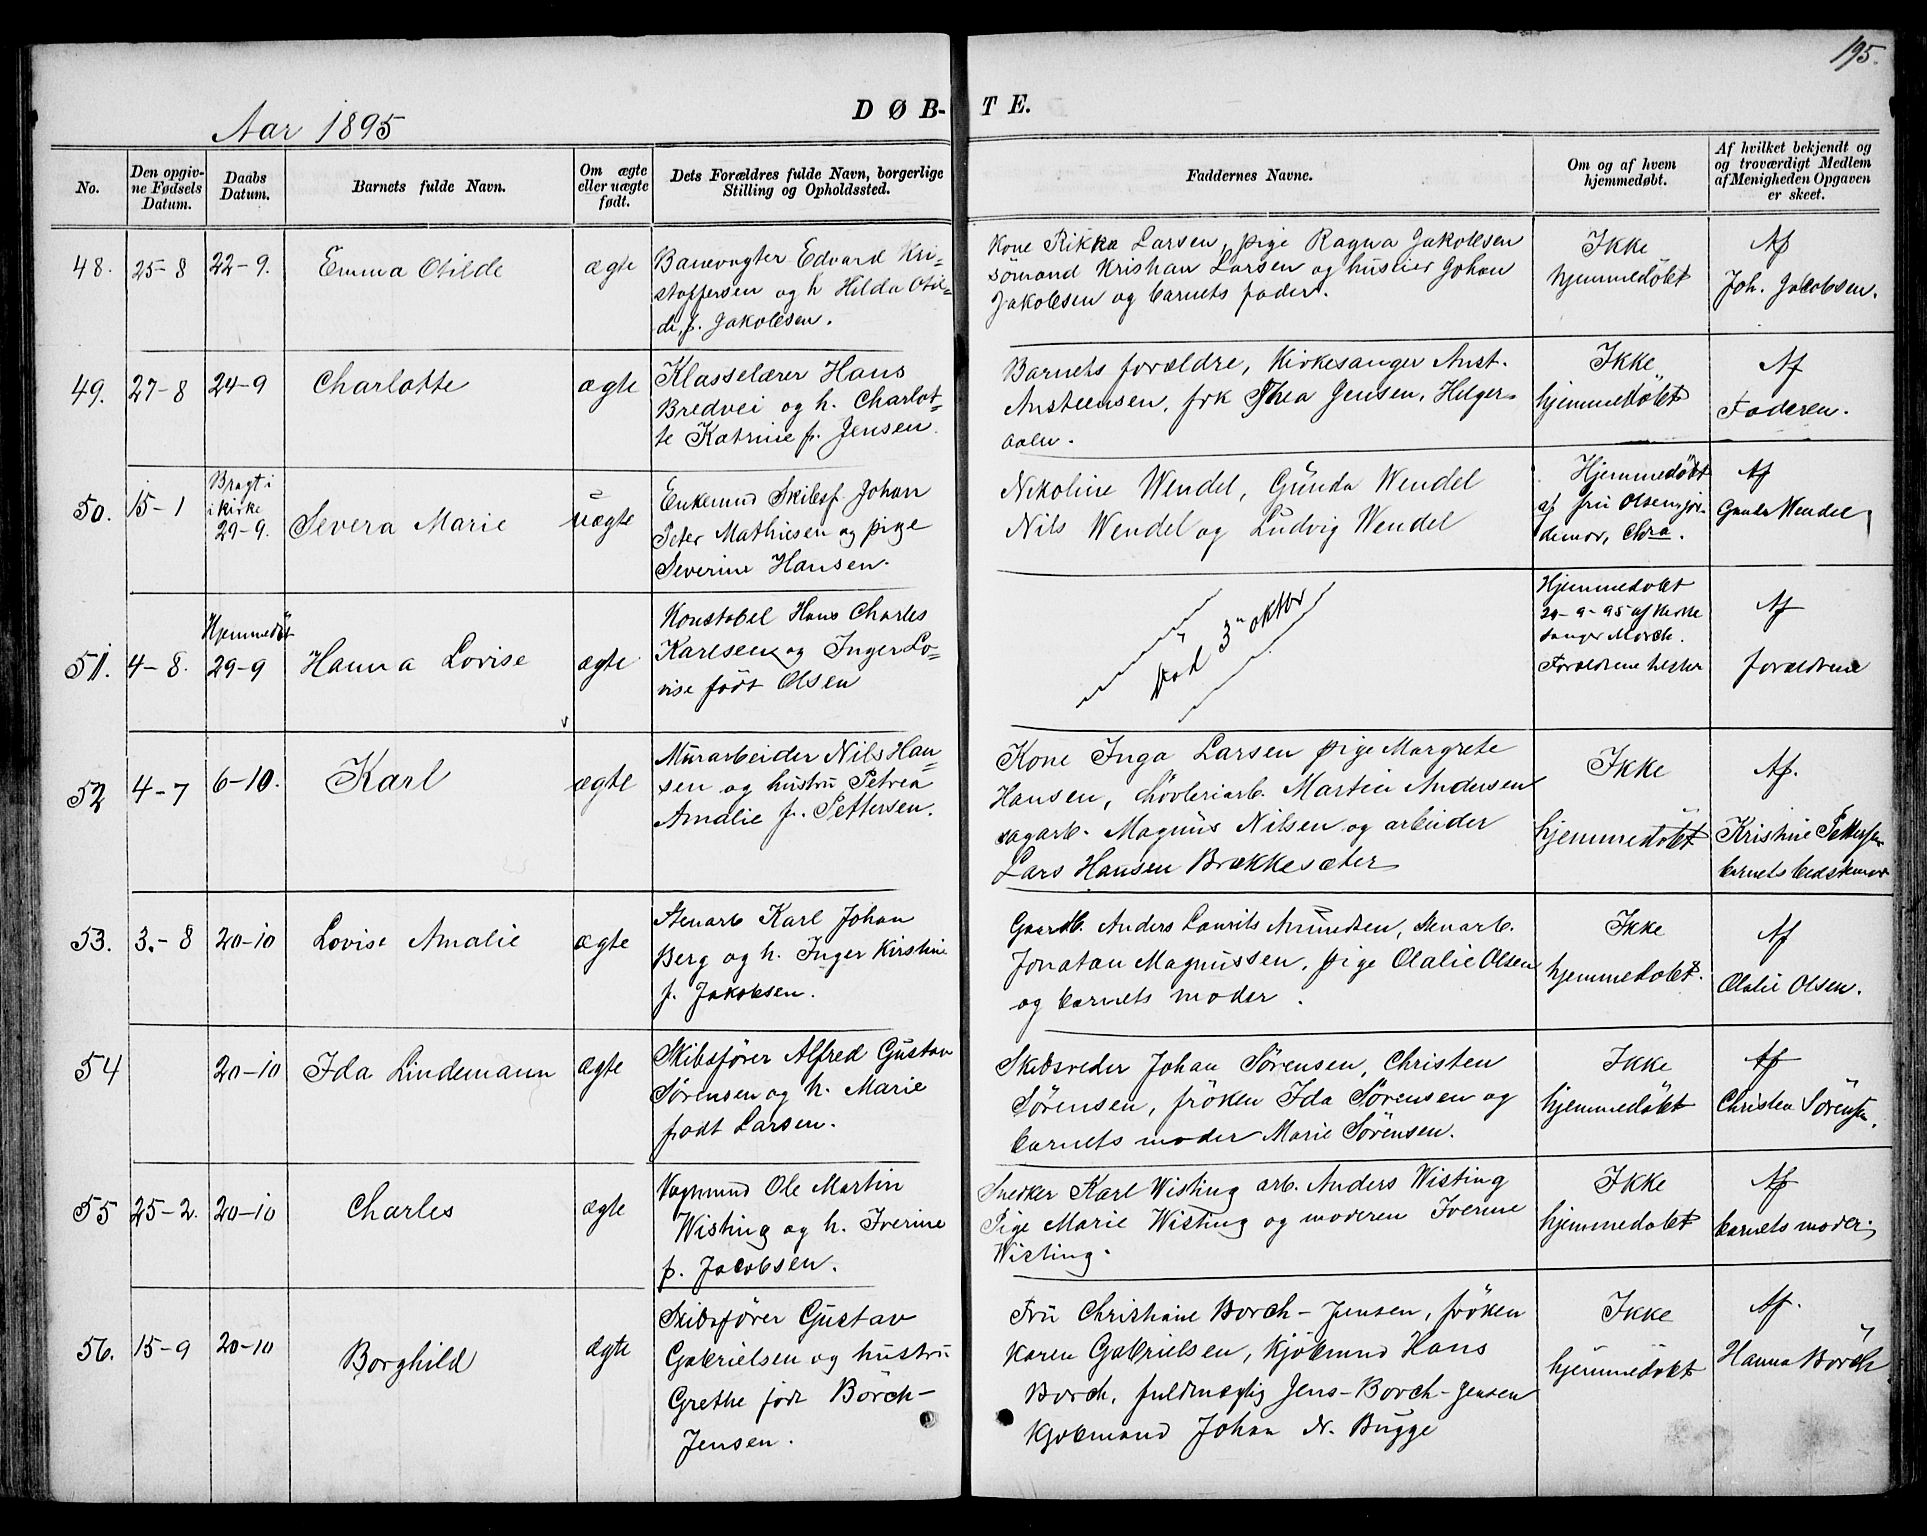 195.
DØB-TE.
Aar 1895
No.
Den opgiv-
ne Fødsels
Datum.
Daabs
Datum.
Barnets fulde Navn.
Om ægte
eller uægte
født.
Dets Forældres fulde Navn, borgerlige
Stilling og Opholdssted.
Faddernes Navne.
Om og af hvem
hjemmedøbt.
Af hvilket bekjendt og
og troværdigt Medlem
af Menigheden Opgaven
er skeet.
48.
25-8
22-9.
Emma Otilde
ægte
Banevogter Edvard Kri-
stoffersen og h Hilda Otil-
de, f. Jakobsen.
Kone Rikka Larsen, pige Ragna Jakobsen
sömand Kristian Larsen og huseier Johan
Jakobsen og barnets fader.
Ikke
hjemmedøbt
Af
Joh. Jacobsen.
49.
27-8
24-9
Charlotte
ægte
Klasselærer Hans
Bredvei og h. Charlot-
te Katrine f. Jensen.
Barnets forældre, Kirkesanger Anst.
Ansteensen, frk Thea Jensen, Helger-
aaen.
Ikke
hjemmedøbt
Af
Faderen.
50.
15-1
Bragt i
kirke
29-9.
Severa Marie
uægte
Enkemand Skibsf. Johan
Peter Mathiesen og pige
Severine Hansen.
Nikoline Wendel, Gunda Wendel
Nils Wendel og Ludvig Wendel
Hjemmedöbt
af fru Olsen, jor-
demor, Chra.
Af
Gunda Wendel
51.
4-8.
Hjemmedöbt
29-9
Hanna Lovise
ægte
Konstabel Hans Charles
Karlsen og Inger Lo-
vise født Olsen
Död 3 oktbr
Hjemmedøbt
29-9-95 af Kirke
sanger Mörch.
Forældrene
Af
forældrene
52
4-7
6-10.
Karl
ægte
Murarbeider Nils Han-
sen og hustru Petrea
Amalie f. Pettersen.
Kone Inga Larsen pige Margrete
Hansen, høvleriarb. Martin Andersen
sagarb. Magnus Nilsen og arbeider
Lars Hansen Brækkesæter
Ikke
hjemmedøbt
Af.
Kristine Pettersen
barnets bedstemor
53.
3.-8
20-10
Lovise Amalie
ægte
Stenarb Karl Johan
Berg og h. Inger Kirstine
f. Jakobsen.
Gaardb. Anders Laurits Amundsen, Stenarb.
Jonatan Magnussen, pige Olalie Olsen
og barnets moder.
Ikke
hjemmedøbt.
Af
Olalie Olsen.
54
20-10
Ida Lindemann
ægte
Skibsfører Alfred Gustav
Sørensen og h. Marie
født Larsen.
Skibsreder Johan Sørensen, Christen
Sørensen, frøken Ida Sørensen og
barnets moder Marie Sørensen.
Ikke
hjemmedøbt
Af
Christen Sörensen.
55
25-2.
20-10
Charles
ægte
Vognmand Ole Martin
Wisting og h. Iverine
f. Jacobsen.
Snedker Karl Wisting arb. Anders Wisting
Pige Marie Wisting og moderen Iverine
Wisting.
Ikke
hjemmedøbt
Af
barnets moder.
56.
15-9
20-10
Borghild
ægte
Skibsfører Gustav
Gabrielsen og hustru
Grethe født Borch-
Jensen.
Fru Christiane Borch-Jensen, frøken
Karen Gabrielsen, Kjøbmand Hans
Borch, fuldmægtig Jens-Borch-Jensen
Kjøbmand Johan N. Bugge
Ikke
hjemmedøbt
Af.
Hanna Borch